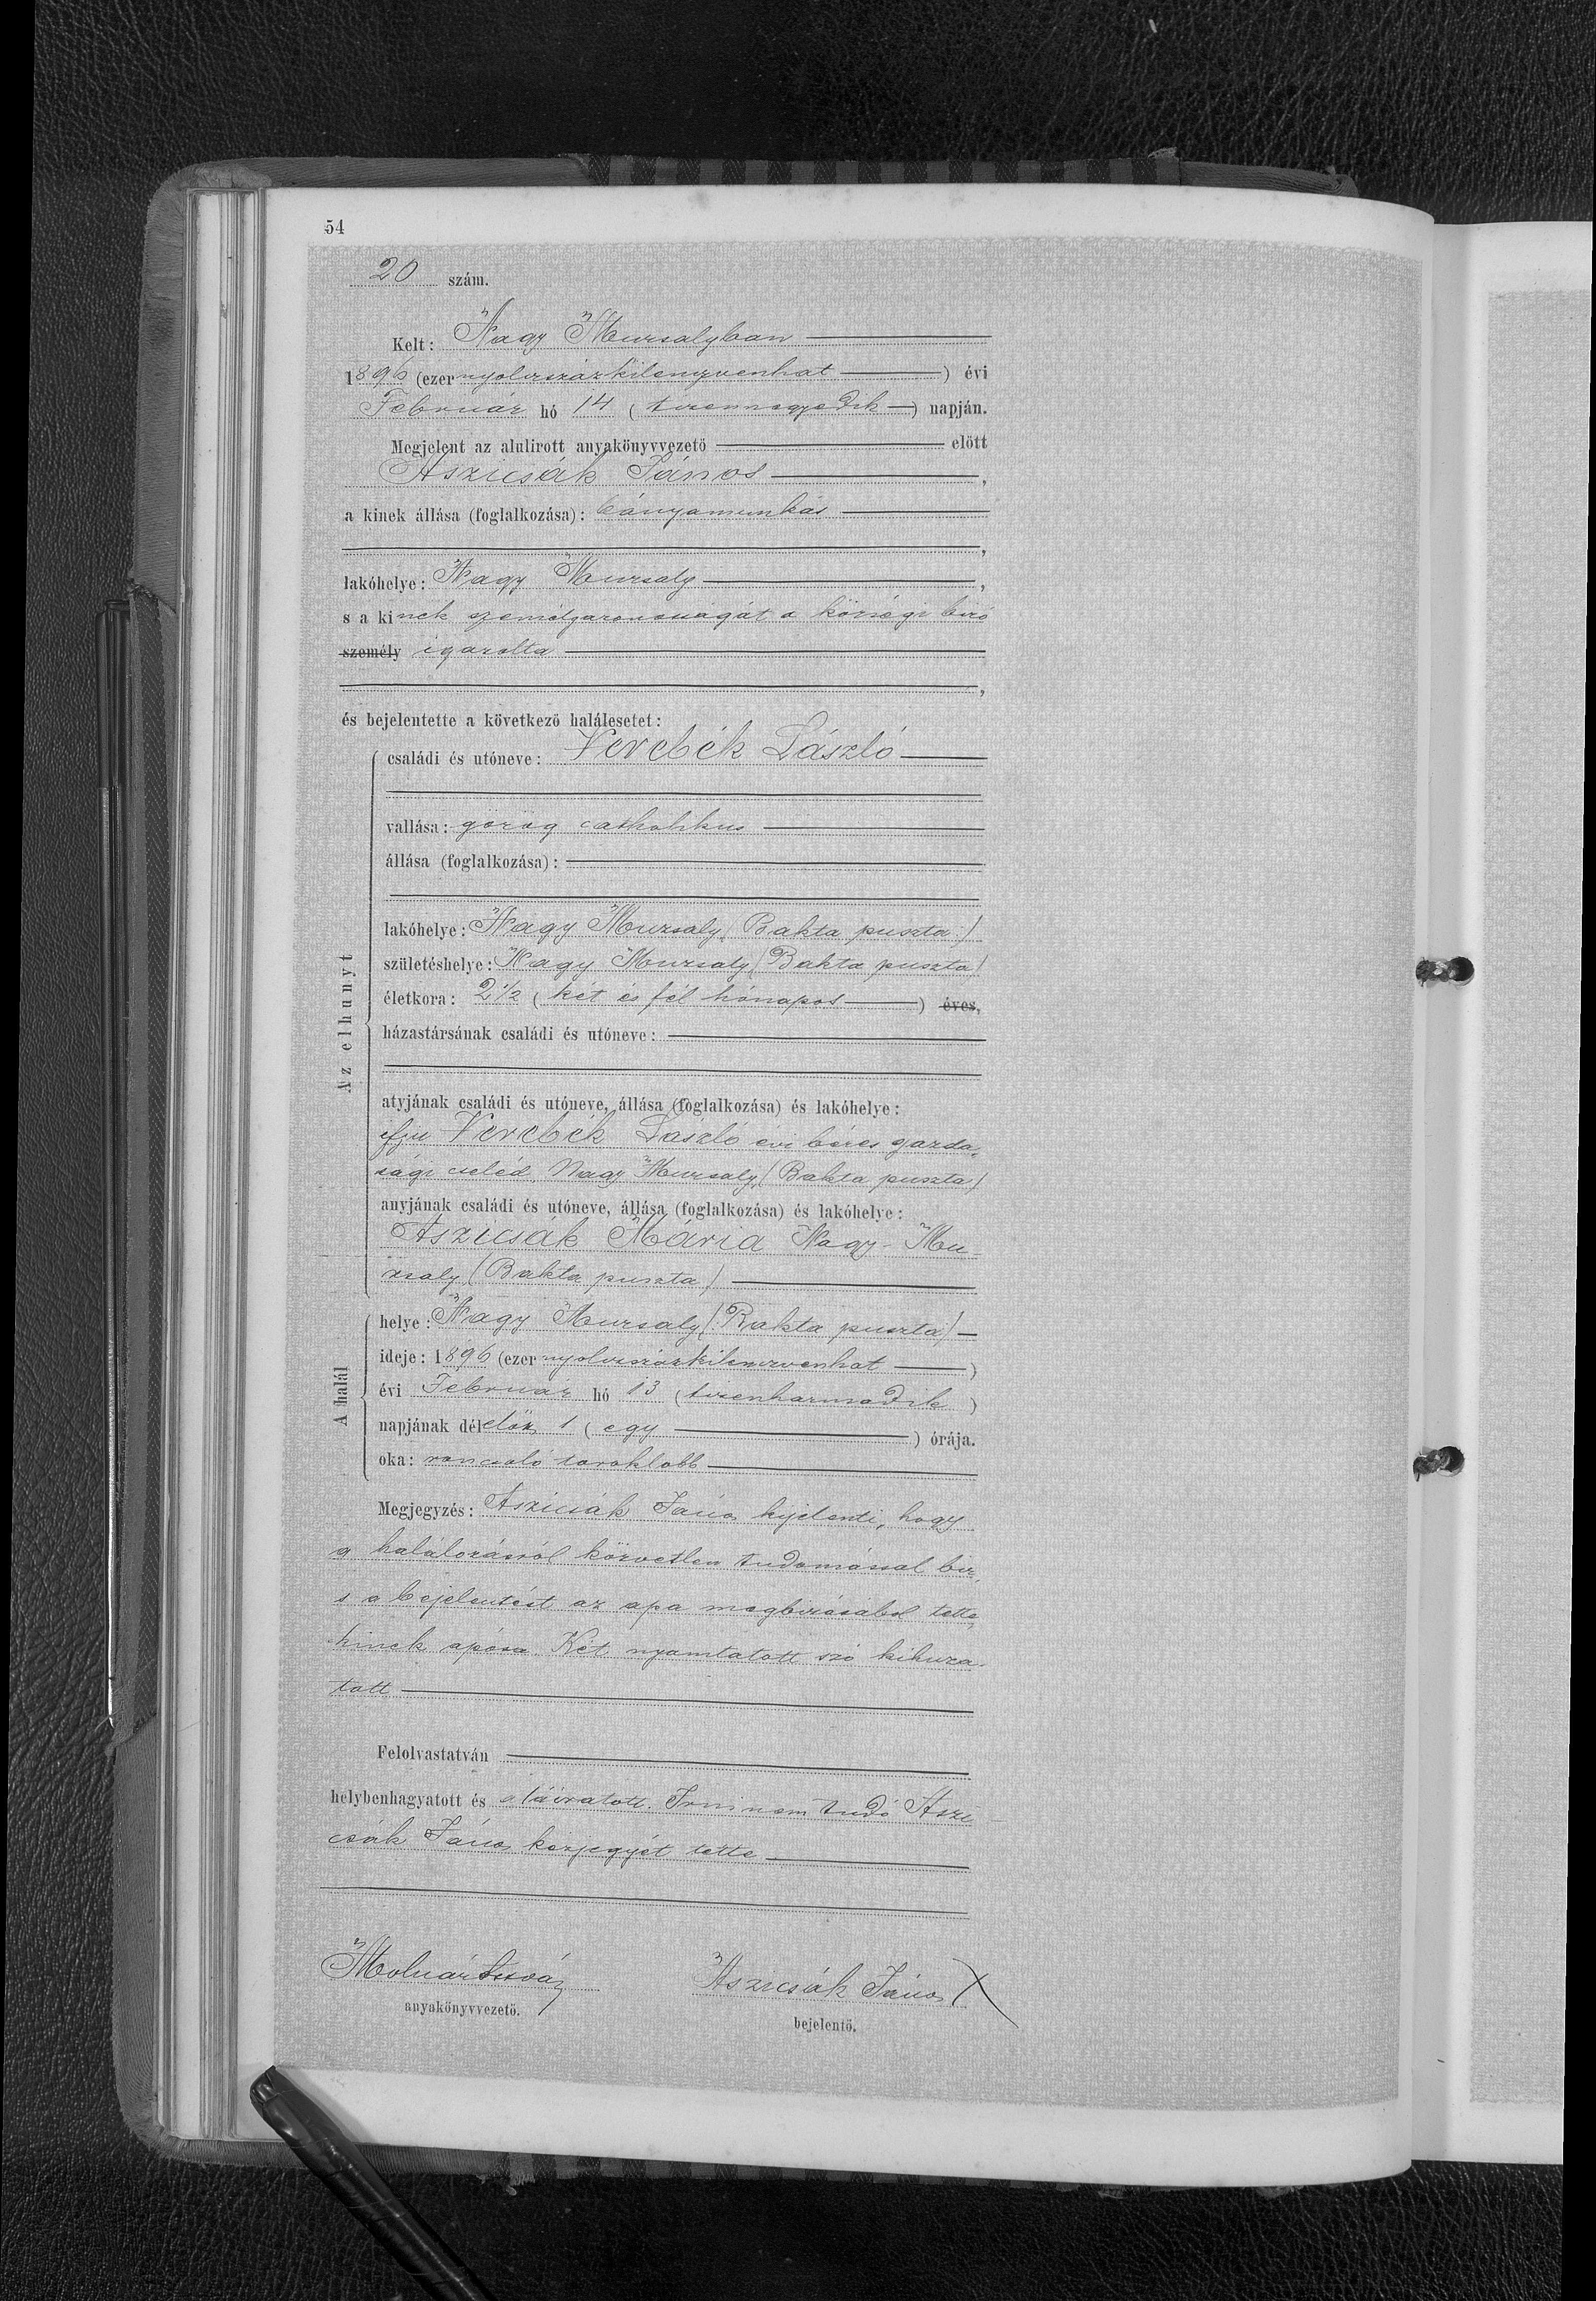 54
20 szám.
Kelt: Nagy Muzsalyban
1896 (ezer nyolczszázkilenczvenhat) évi
Február hó 14 (tizennegyedik) napján.
Megjelent az alulirott anyakönyvvezető előtt
Aszicsák János,
a kinek állása (foglalkozása): bányamunkás
,
lakóhelye: Nagy Muzsaly,
s a kinek személyazonosságát a községi biró
személy igazolta
,
és bejelentette a következő halálesetet:
Az elhunyt
családi és utóneve: Verebék László
vallása: görög catholikus
állása (foglalkozása):
lakóhelye: Nagy Muzsaly (Bakta puszta)
születéshelye: Nagy Muzsaly (Bakta puszta)
életkora: 2 1/2 (két és fél hónapos) éves,
házastársának családi és utóneve:
atyjának családi és utóneve, állása (foglalkozása) és lakóhelye:
ifju Verebék László évi béres gazda-
sági cseléd, Nagy Muzsaly (Bakta puszta)
anyjának családi és utóneve, állása (foglalkozása) és lakóhelye:
Aszicsák Mária Nagy-Mu-
zsaly (Bakta puszta)
A halál
helye: Nagy Muzsaly (Bakta puszta)
ideje: 1896 (ezer nyolczszázkilenczvenhat)
évi Február hó 13 (tizenharmadik)
napjának délelőtt 1 (egy) órája.
oka: roncsoló toroklobb
Megjegyzés: Aszicsák János kijelenti, hogy
a halálozásról közvetlen tudomással bir,
s a bejelentést az apa megbizásából tette,
kinek apósa. Két nyomtatott szó kihuza-
tott
Felolvastatván
helybenhagyatott és aláiratott. Irni nem tudó Aszi-
csák János kézjegyét tette
Molnár István
anyakönyvvezető.
Aszicsák János X
bejelentő.